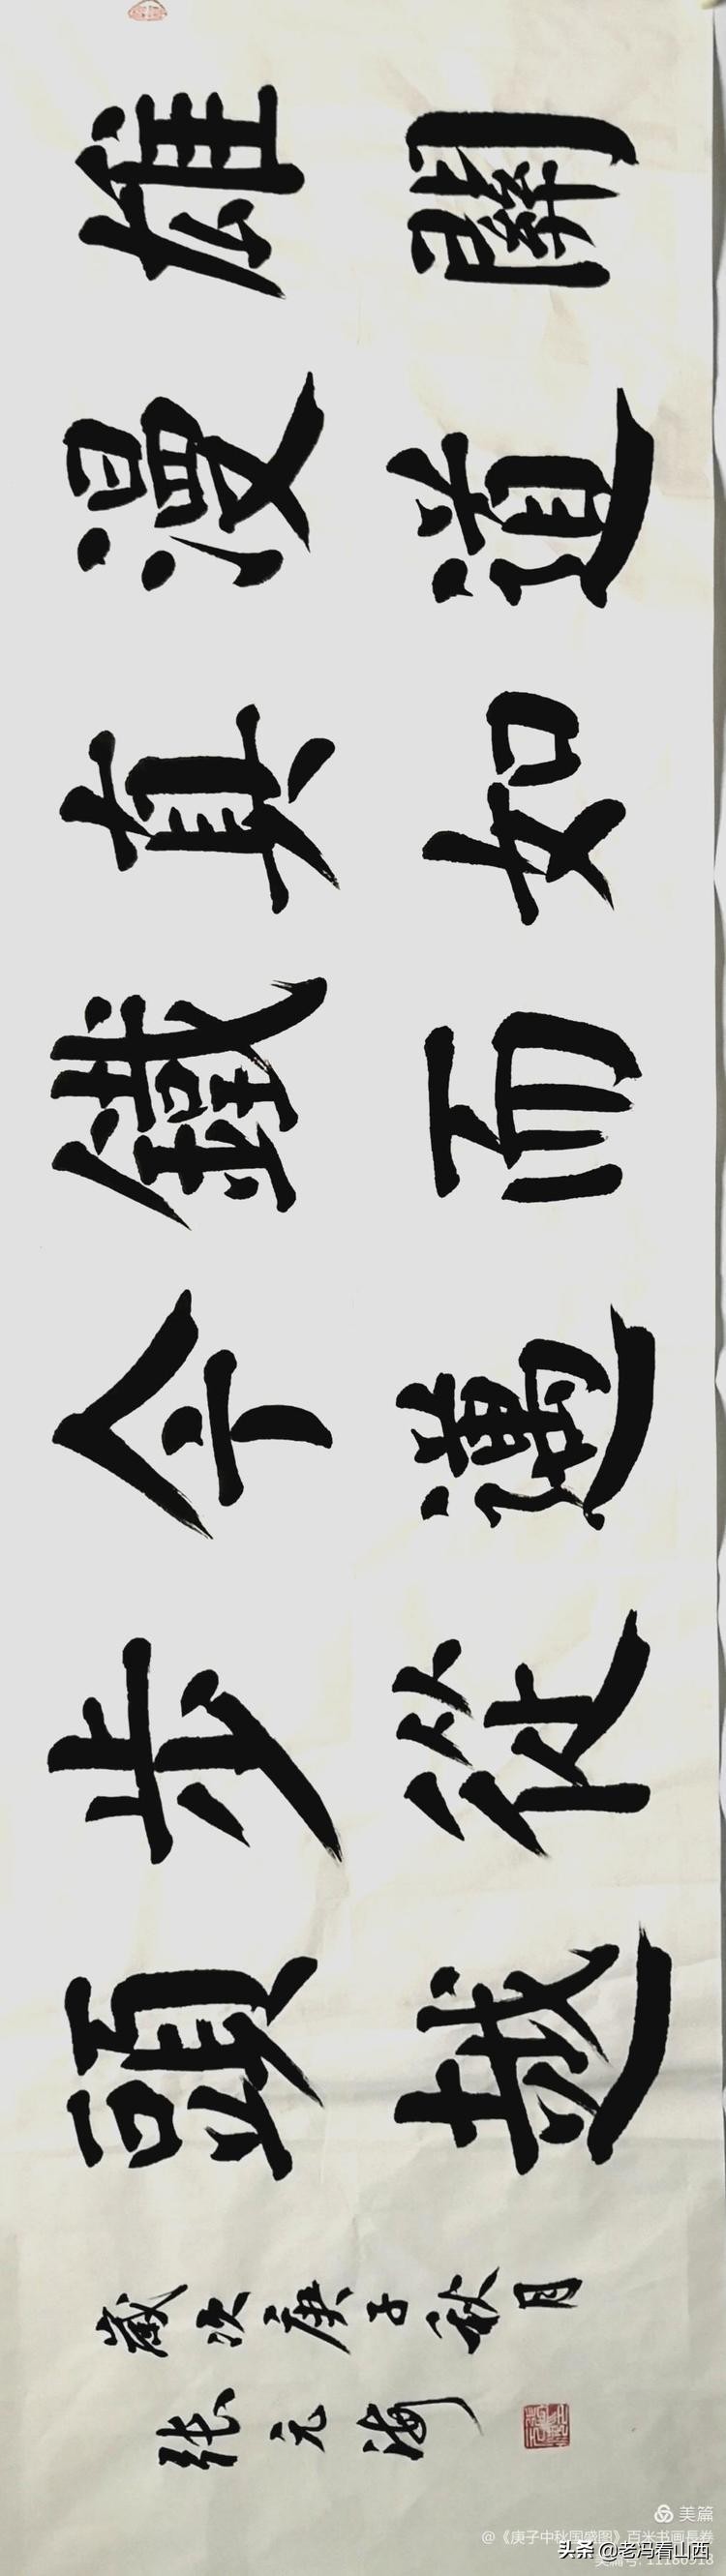 雄關
漫道
真如
鐵而
今邁
步從
頭越
歲次庚子秋月
張元海
美篇
@《庚子中秋国盛图》百米书画長卷
美篇号: 11186918
头条 @老冯看山西